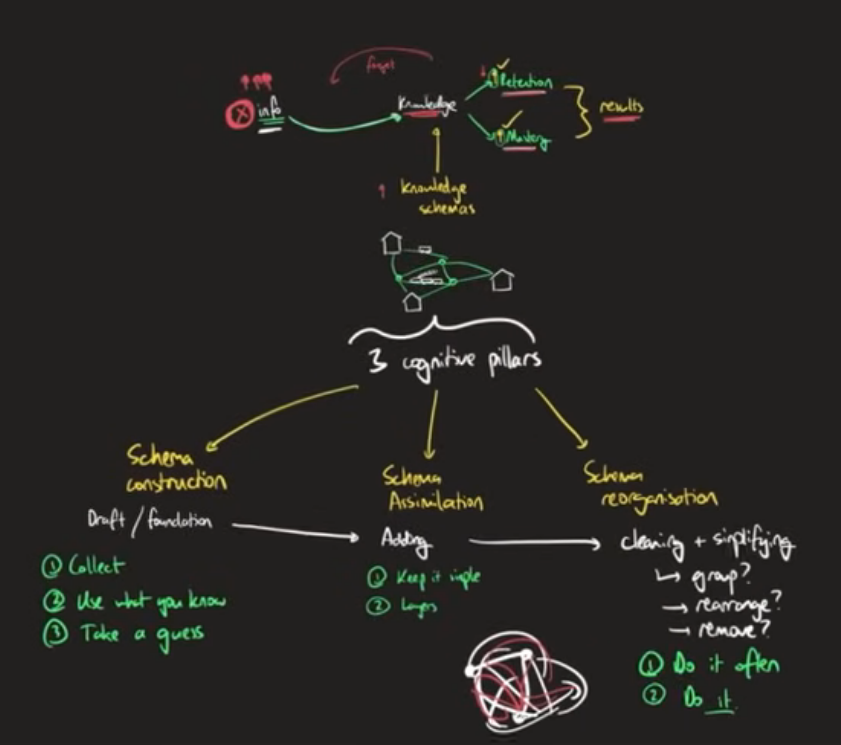 forget
info
Knowledge
Retention
Mastery
results
Knowledge
schemas
3 cognitive pillars
Schema
construction
Draft / foundation
① Collect
② Use what you know
③ Take a guess
Schema
Assimilation
Adding
① Keep it simple
② Layers
Schema
reorganisation
cleaning + simplifying
group?
rearrange?
remove?
① Do it often
② Do it.